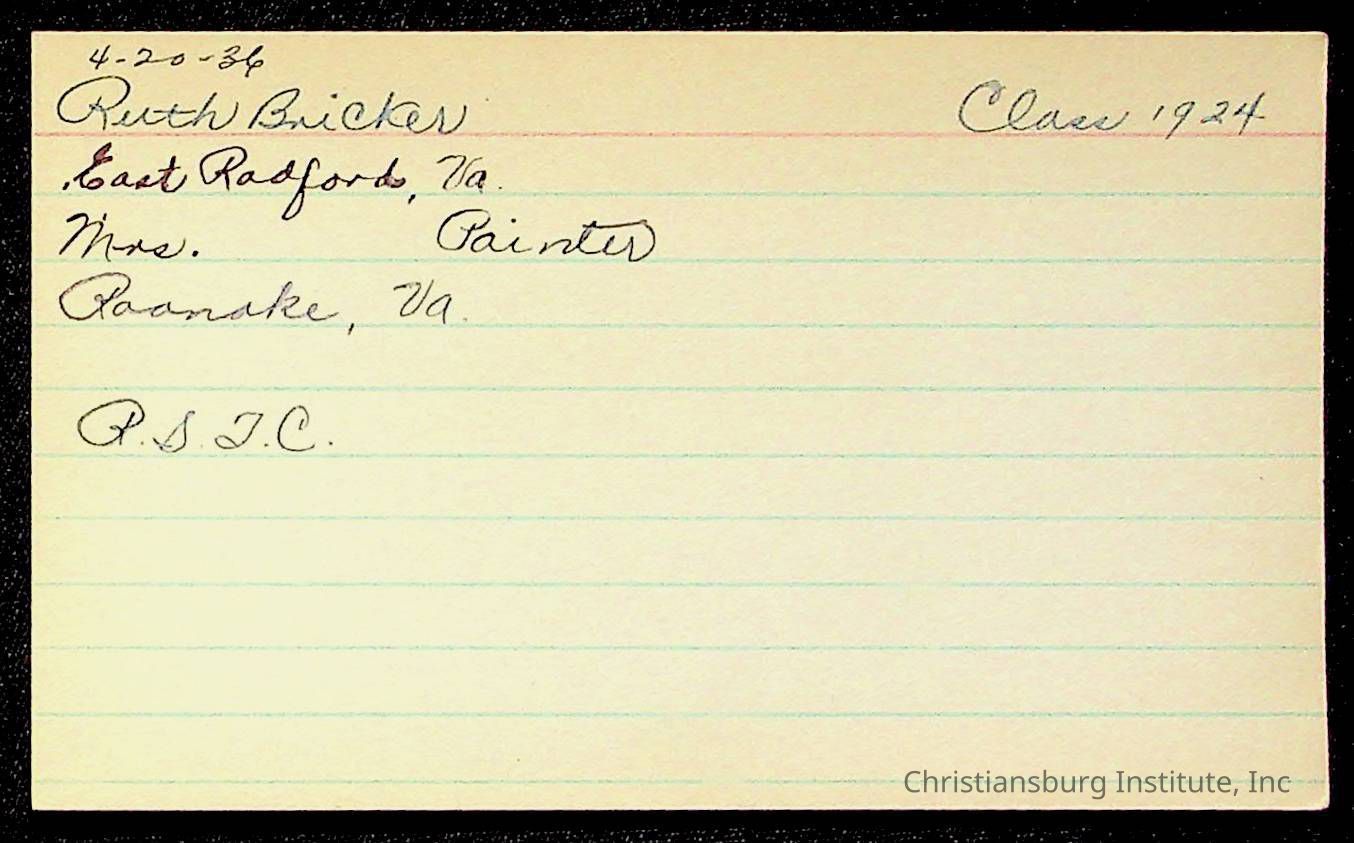 4-20-36
Ruth Bricker Class 1924
East Radford, Va.
Mrs. Painter
Roanoke, Va.
R.S.T.C.
Christiansburg Institute, Inc